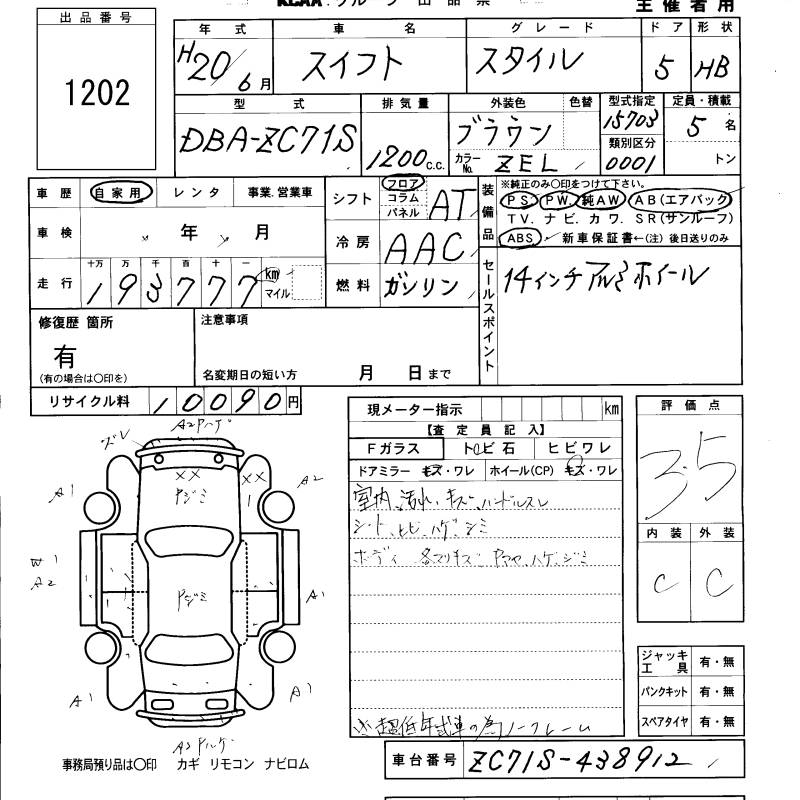 KCAA
主催者用
出品番号
1202
年式 車名 グレード ドア 形状
H20/6月 スイフト スタイル 5 HB
型式 排気量 外装色 色替 型式指定 定員・積載
DBA-ZC71S 1200c.c. ブラウン 15703 5名
類別区分
カラーNo. ZEL 0001 トン
車歴 自家用 レンタ 事業.営業車
シフト フロア コラム パネル AT
装備品 ※純正のみ○印をつけて下さい。
PS PW 純AW AB(エアバック)
TV. ナビ. カワ. SR(サンルーフ)
ABS 新車保証書←(注)後日送りのみ
車検 年 月
冷房 AAC
走行 十万 万 千 百 十 一
193777 km マイル
燃料 ガソリン
セールスポイント
14インチアルミホイール
修復歴 箇所
有
(有の場合は○印を)
注意事項
名変期日の短い方 月 日まで
リサイクル料 10090円
現メーター指示 km
【査定員記入】
Fガラス トビ石 ヒビワレ
ドアミラー キズ・ワレ ホイール(CP) キズ・ワレ
室内、汚れ、キズ、ハンドルスレ
シート、ヒビ、ハゲ、シミ
ボディ 各マリキズ ヤケ、ハゲ、ジミ
※超低年式車の為ノークレーム
評価点
3.5
内装 外装
C C
ジャッキ工具 有・無
パンクキット 有・無
スペアタイヤ 有・無
車台番号 ZC71S-438912
ズレ
A2 ハゲ
XX
XX
A1
A2
W1
A2
A1
A1
A1
事務局預り品は○印 カギ リモコン ナビロム